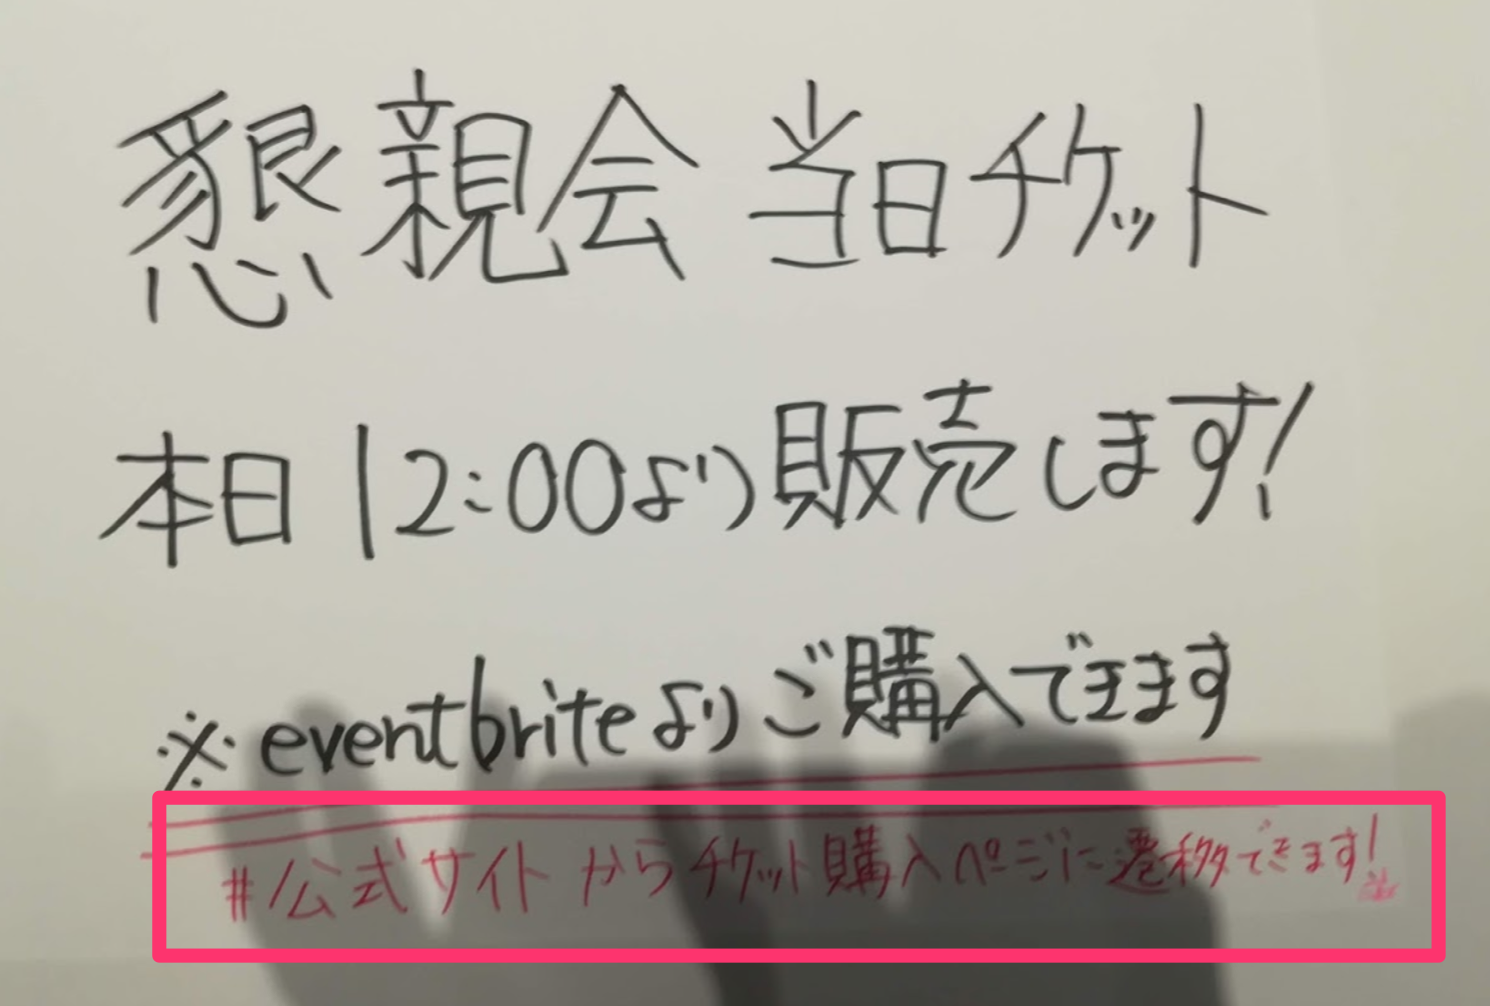 懇親会 当日チケット
本日 12:00より販売します!
※eventbriteよりご購入できます
#公式サイトからチケット購入ページに遷移できます!